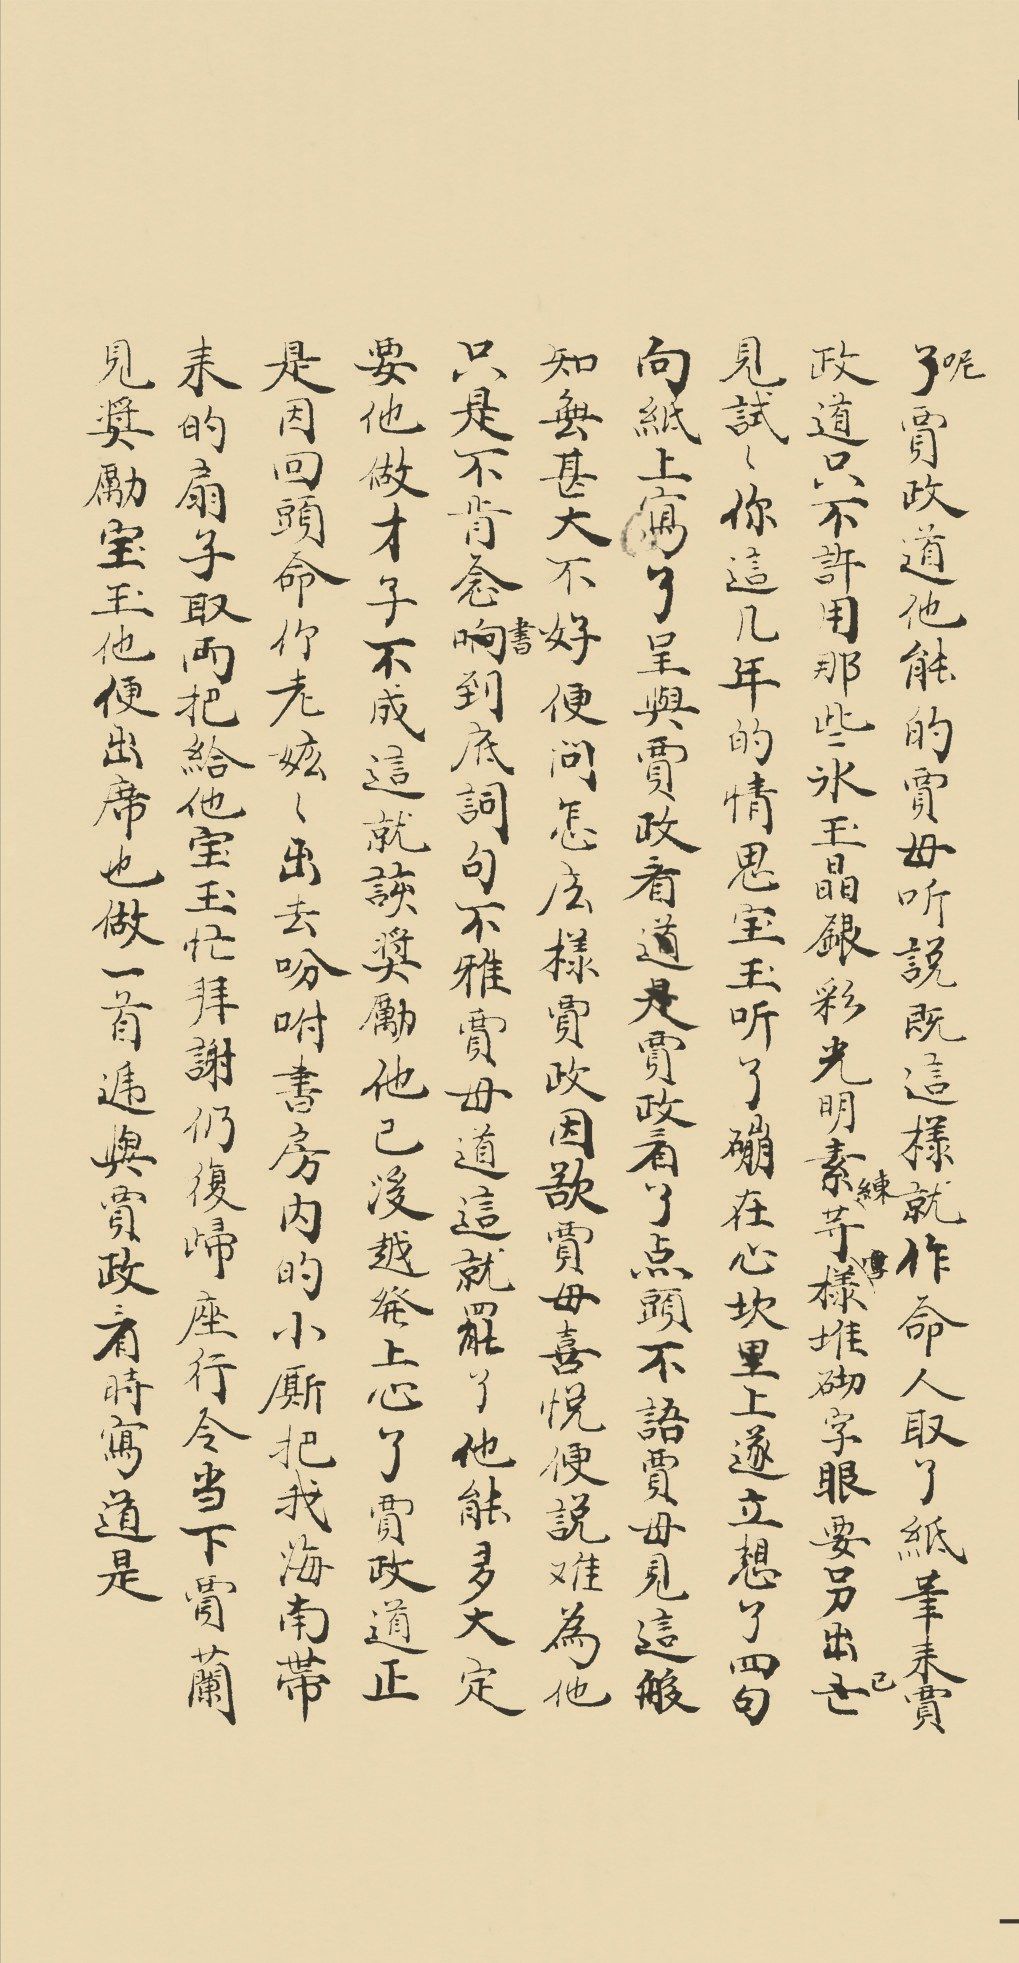 了呢賈政道他能的賈母听説既這様就作命人取了紙筆来賈
政道只不許用那些氷玉晶銀彩光明素練等様堆砌字眼要另出己
見試〻你這几年的情思宝玉听了碰在心坎里上遂立想了四句
向紙上寫了呈與賈政看道是賈政看了点頭不語賈母見這般
知無甚大不好便问怎庅様賈政因欲賈母喜悦便説难為他
只是不肯念書到底詞句不雅賈母道這就罷了他能多大定
要他做才子不成這就該奨勵他已後越発上心了賈政道正
是因回頭命你老嫉〻出去吩咐書房内的小厮把我海南帯
来的扇子取両把給他宝玉忙拜謝仍復歸座行令当下賈蘭
見奨勵宝玉他便出席也做一首逓與賈政看時寫道是